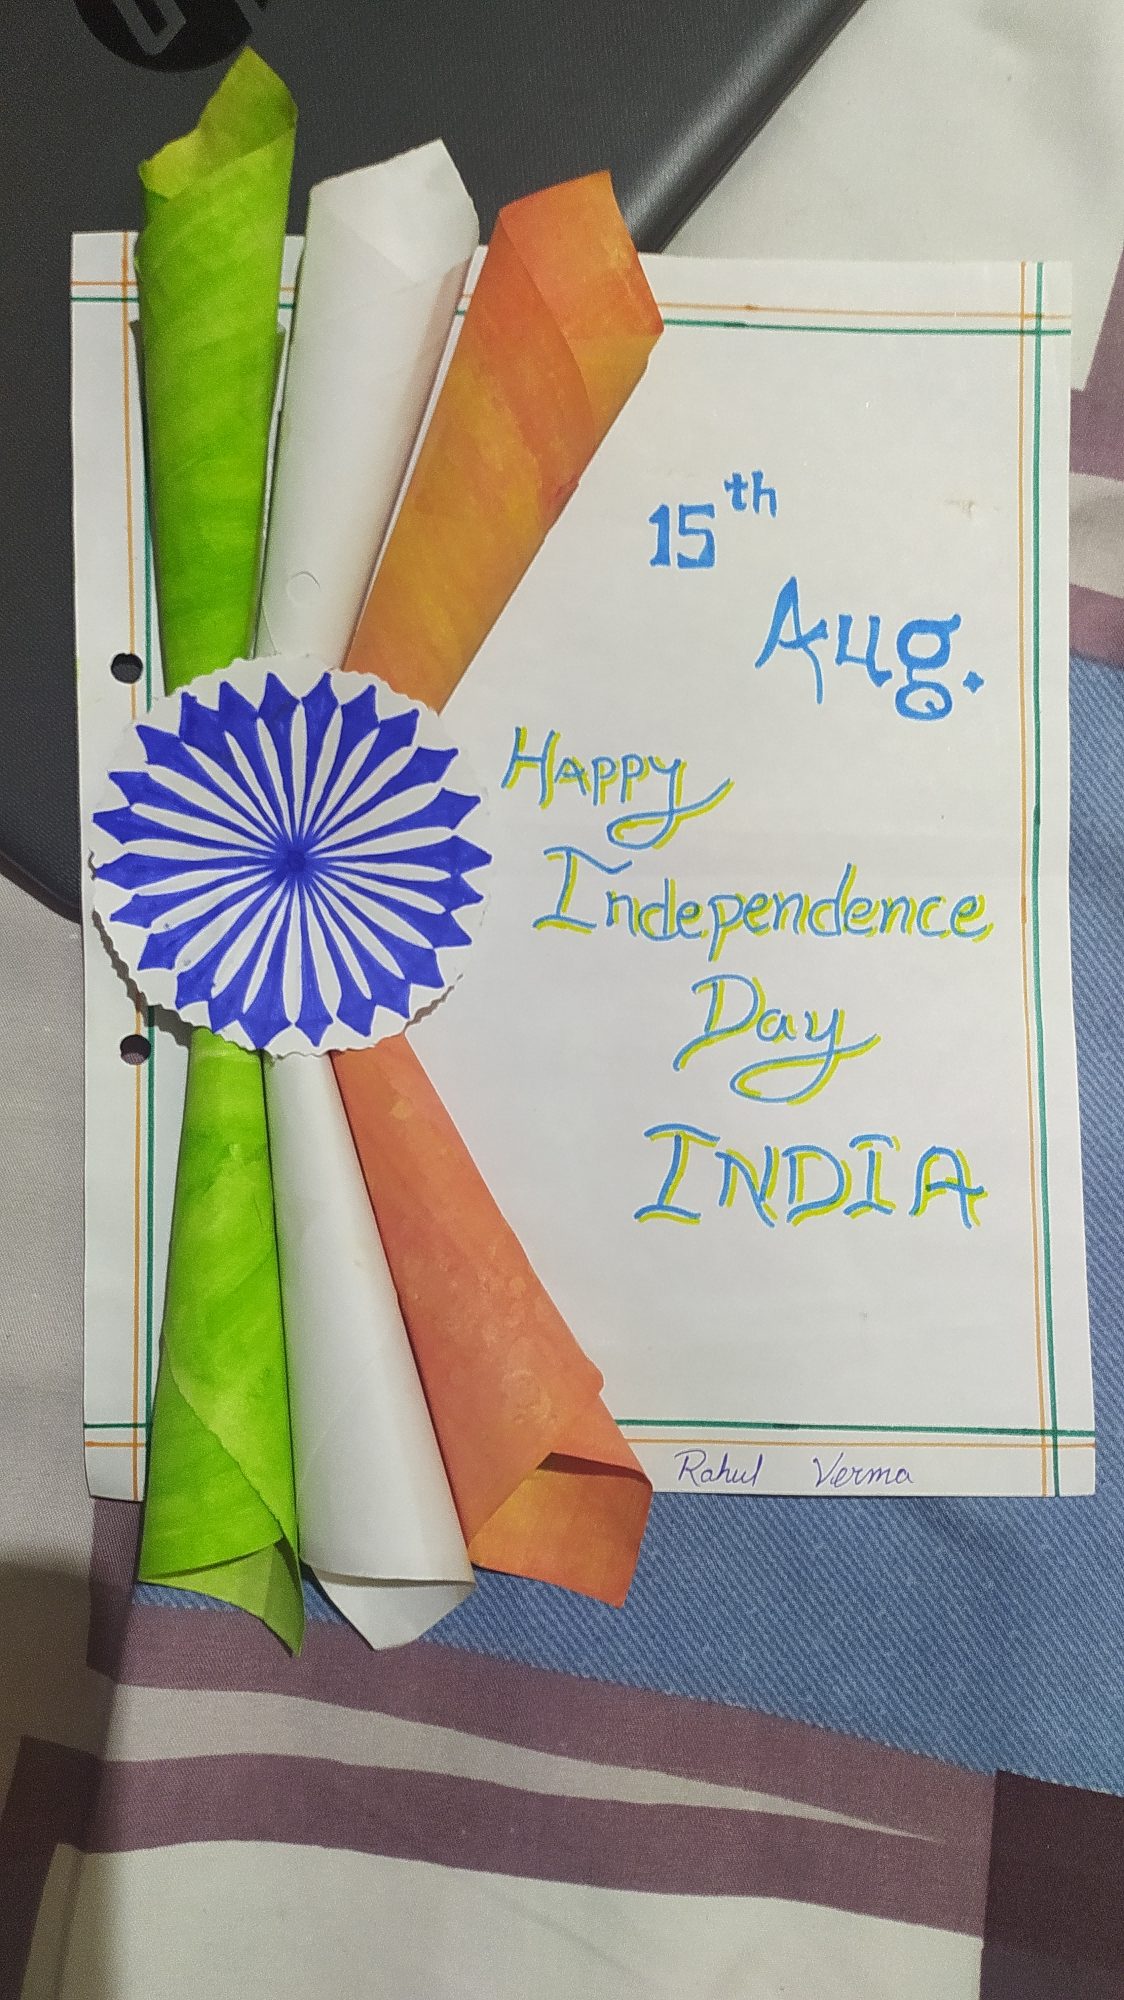 15th
Aug.
Happy
Independence
Day
INDIA
Rahul Verma